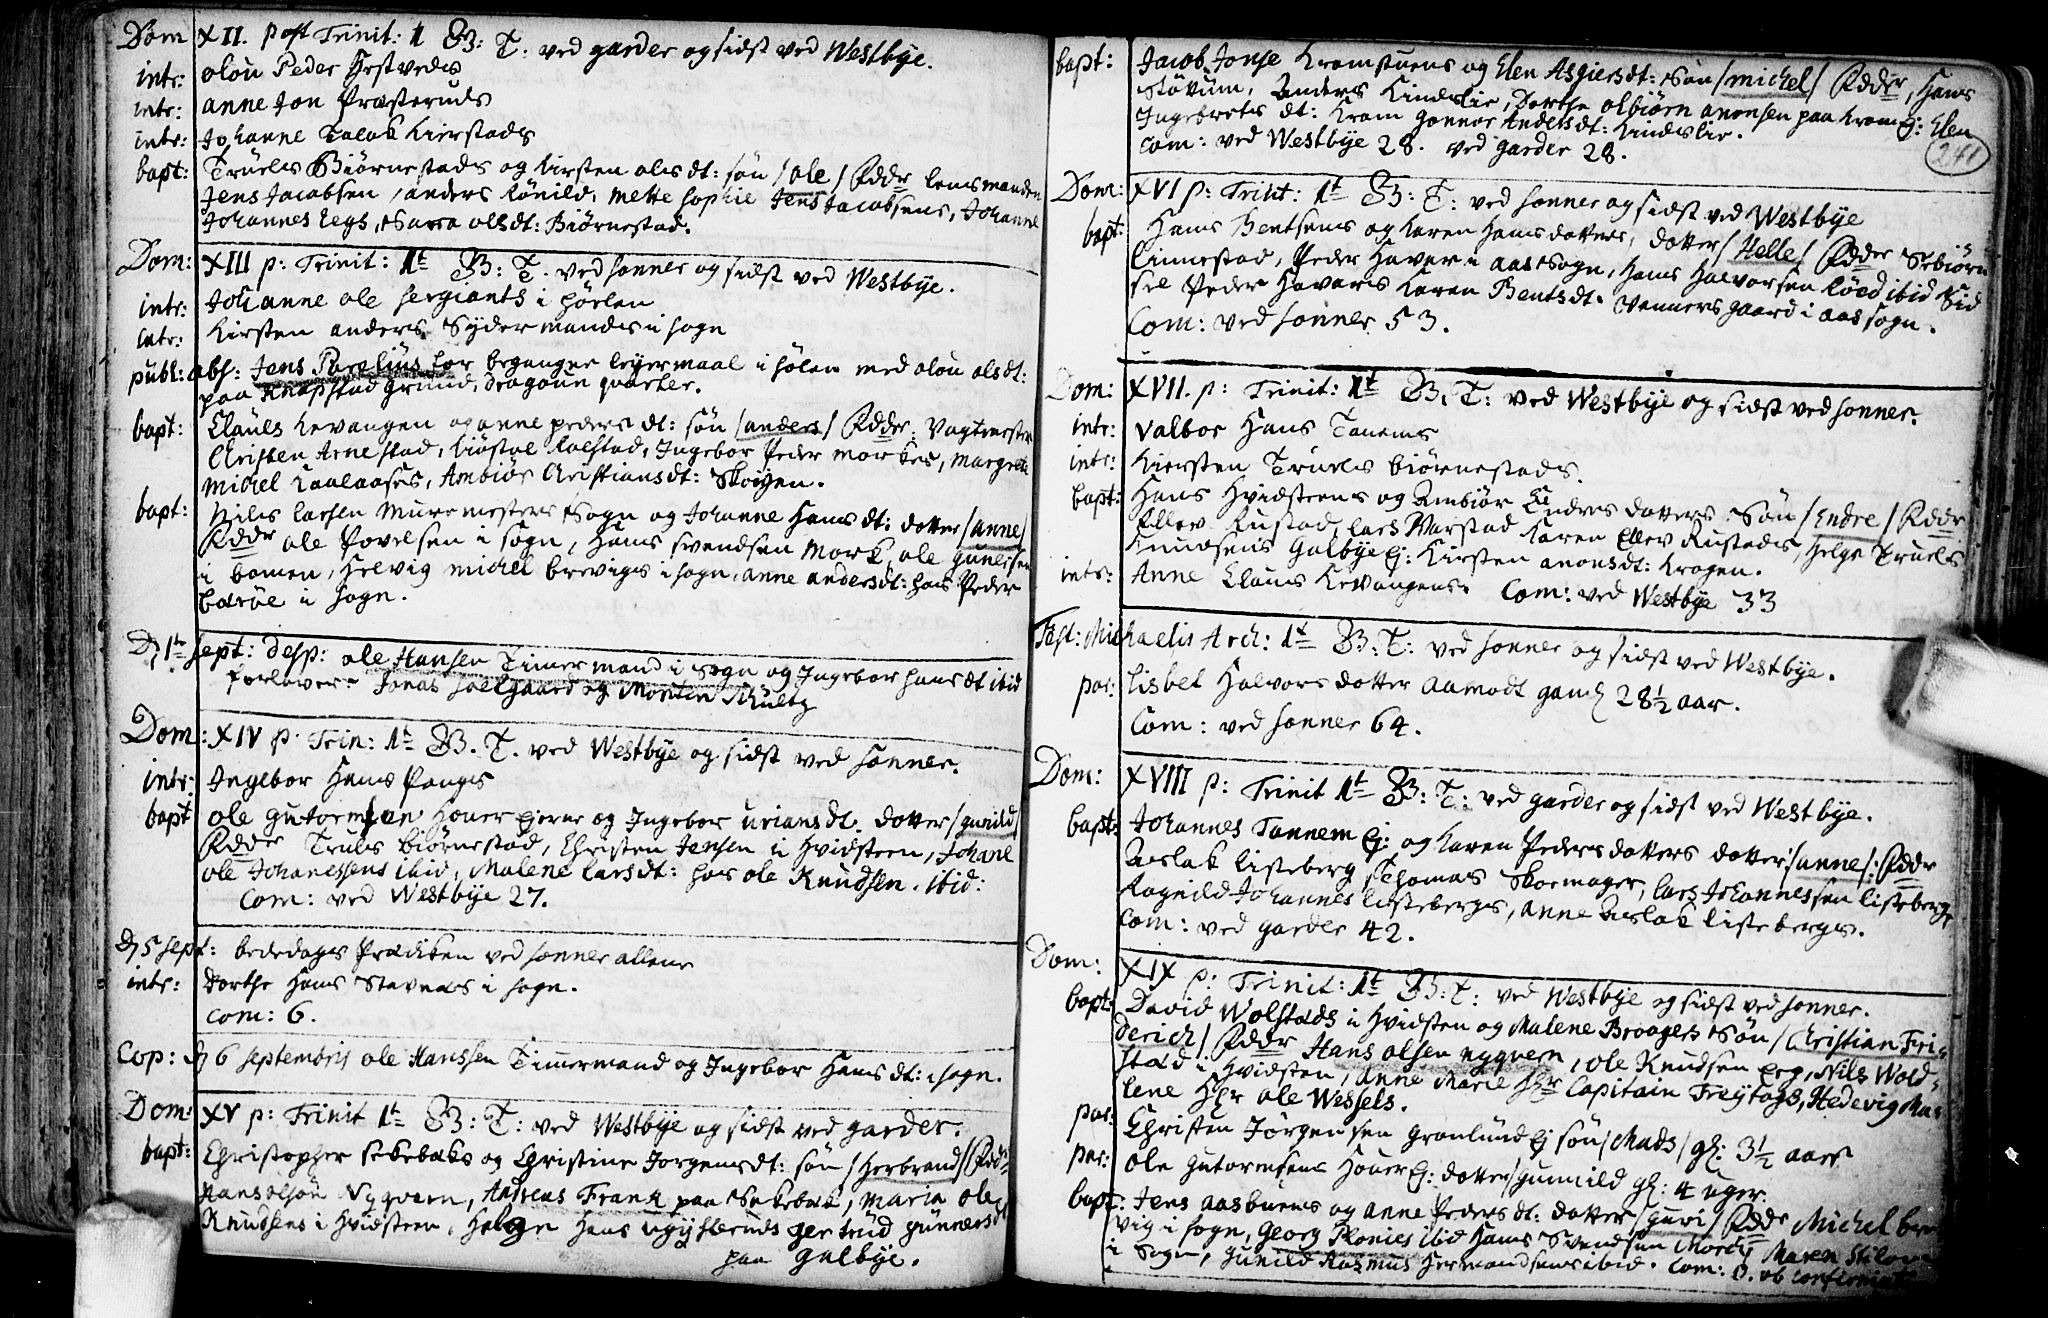 Dom XII. post Trinit: 1 B: T: ved garder og sidst ved Westbÿe.
intr: olou Peder Hestvedts
intr: anne Jon Præsteruds
intr: Johanne Kierstads
bapt: Trüels Biørnestads og Kirsten olis dt: søn /ole/ Fddr lensmanden
Jens Jacobsen, anders mette sophie Jens Jacobsens, Johanne
Johannes olsdt: Biørnestad.
Dom: XIII p: Trinit: 1t B: T. ved sonner og sidst ved Westbÿe.
intr: Johanne ole sergiants i hølen
intr: Kirsten anders i sogn
publ: abs: Jens for begangne leyermaal i hølen med olou olsdt:
paa Knapstad grund, dragoun qvarter.
bapt: Claüses Kevangen og anne peders dt: søn /anders/ Fddr. Vagtmester
Christen Arnestad, Ingebor Peder morkes, margrete
michel Ambiør Christiansdt: Skoyen.
bapt: Niels larsen Muremesters i Sogn og Johanne Hans dt: dotter /anne/
Fddr ole Povelsen i sogn, Hans swendsen Mork, ole
i bomen, Helvig michel brevigs i sogn, anne andersdt: hos Peder
i sogn.
D 1te sept: desp: ole Hansen Timermand i Sogn og Ingebor hans dt ibid
forlover: Jonas og Morten Schultz
Dom: XIV p. Trin: 1t B. T. ved Westbÿe og sidst ved sonner.
intr: Ingebor Hans
bapt ole gutormsen Houer og Ingebor uriansdt. dotter /gunild/
Fddr Truls biørnestad, Christen Jensen i Hvidsteen, Johane
ole Johanessens ibid, Malene larsdt: hos ole Knudsen. ibid:
Com: ved Westbÿe 27.
D 5 sept: bededags Prædiken ved sonner allene
intr: Dorthe Hans i sogn.
com: 6.
Cop: d 6 septembris ole Hanssen Timermand og Ingebor Hans dt: i sogn.
Dom: XV p: Trinit 1t B: T: ved Westbÿe og sidst ved garder.
bapt: Christopher og Christine Jorgensdt: søn /Herbrand/ Fddr
Hans olsøn Nÿqvern, Andreas Frank paa maria ole
Knudsens i Hvidsteen, Helge Hans gertrüd günnersdt
paa galbÿe.
bapt: Jacob Jonse Kromstuens og Elen Asgiersdt: søn /michel/ Fddr, Hans
Støkum, Anders Kinderlie, Dorthe olbiørn anonsen paa Krom: Elen
Ingebrets dt: Krom gonnor Andersdt: Kinderlie.
com: ved Westbÿe 28. ved garder 28.
241
Dom: XVI p: Trinit: 1t B: T: ved sonner og sidst ved Westbÿe
bapt: Hans Bentsens og Karen Hansdotters, dotter /Helle/ Fddr
Linnestad, Peder Haver i aas Sogn, Hans Halvorsen ibid
Peder Havers Karen Bentsdt. Wennersgaard i aas sogn.
Com: ved sonner 53.
Dom: XVII. p: Trinit: 1t B. T: ved Westbÿe og sidst ved sonner.
intr: Valbor Hans Tanems
intr: Kiersten Trüels biørnestads
bapt: Hans Hvidsteens og Ambiør Endres dotters. Søn /Endre/ Fddr
Ellev Rustad, lars Warstad Karen Ellev Rustads, Helge Truels
Knudsens Galbÿe: Kirsten anonsdt: Krogen.
intr: Anne Claues Kevangens. Com: ved Westbÿe 33
Fest: Michaelis Arch: 1t B: T: ved sonner og sidst ved Westbÿe.
par: lisbet Halvors dotter aamodt gaml 28½ aar.
Com: ved sonner 64.
Dom: XVIII p: Trinit 1t B: T: ved garder og sidst ved Westbÿe.
bapt: Johannes Tannem og Karen Peders dotters dotter: /anne/: Fddr
Aslak listeberg Thomas Skoemager, lars Johannessen listeberg,
Ragnild Johannes listebergs, anne Aslak listebergs.
Com: ved garder 42.
Dom: XIX p: Trinit: 1t B: T: ved Westbÿe og sidst ved sonner.
bapt: David Wolstads i Hvidsten og Malene Broagers søn /Christian Fri-
derich/ Fddr Hans olsen nyqvern, ole Knudsen, Nils Wold-
stad i Hvidsten, anne Marie Hr Capitain Freÿtags, Hedevig Ma-
lene Hr ole Wessels.
par: Christen Jörgensen Gronlund søn /Mads/ gl: 3½ aars
par: Ole Gutormsens Houer: dotter /gunnild gl: 4 uger.
bapt: Jens aasbuens og anne Peders dt: dotter /guri/ Fddr Michel bre-
vig i sogn, Georg ibid Hans Svendsen Mork, Maren
i Sogn, gunild Rasmus Hermandsens ibid. Com: 0. ob